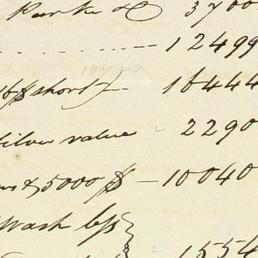 Parke & 3700
12499
16 $ short 16444
Silver value 2290
& 5000 $ – 10040
Wash
1554